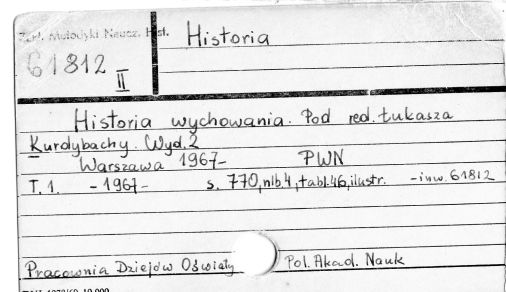 Zakł. Metodyki Naucz. Hist.
Historia
61812
II
Historia wychowania. Pod red. Łukasza
Kurdybachy. Wyd. 2
Warszawa 1967- PWN
T. 1. - 1967 - s. 770, nlb. 4, tabl. 46, ilustr. - inw. 61812
Pracownia Dziejów Oświaty Pol. Akad. Nauk